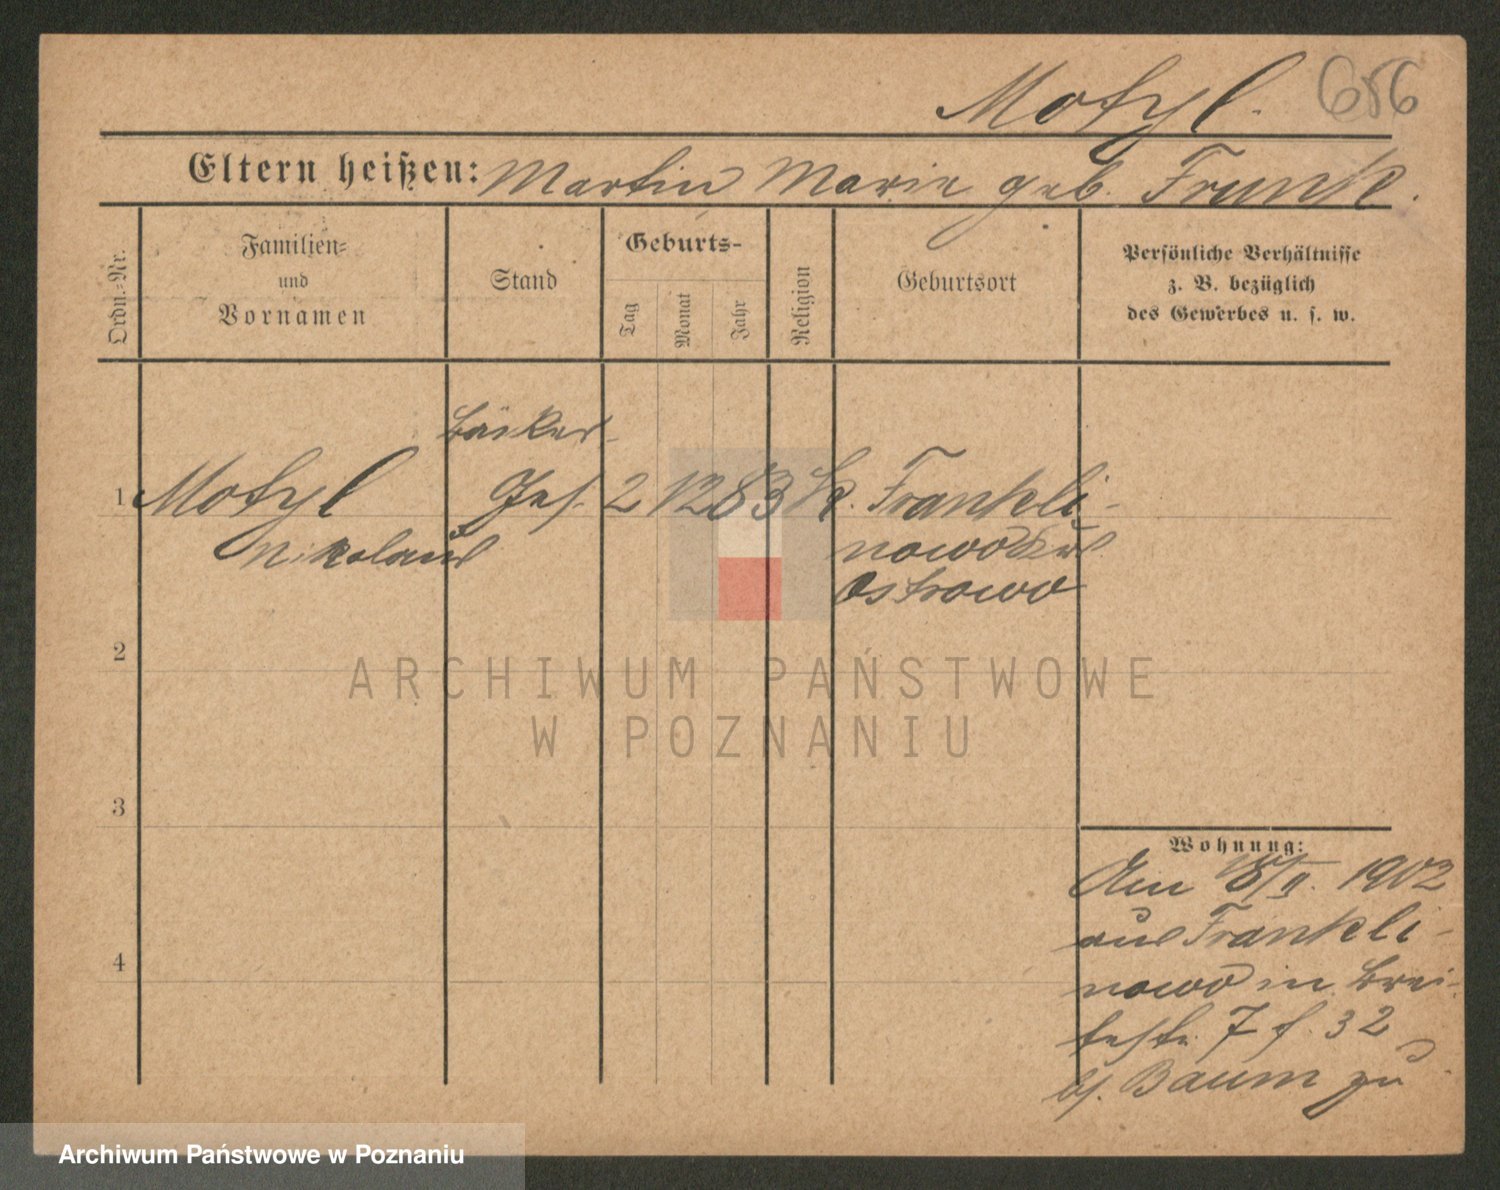 Motyl. 656
Eltern heißen: Martin Marie geb. Frank.
Ordn.-Nr.
Familien-
und
Vornamen
Stand
Geburts-
Tag
Monat
Jahr
Religion
Geburtsort
Persönliche Verhältnisse
z. B. bezüglich
des Gewerbes u. s. w.
Bäcker-
1 Motyl Ges. 2 12 83 K. Frankli-
Nikolaus nowo Krs
Ostrowo
2
3
4
Wohnung:
Am 18/II. 1902
aus Frankli-
nowo in Brei-
testr. 7 f. 32
bj. Baum zu
ARCHIWUM PAŃSTWOWE
W POZNANIU
Archiwum Państwowe w Poznaniu